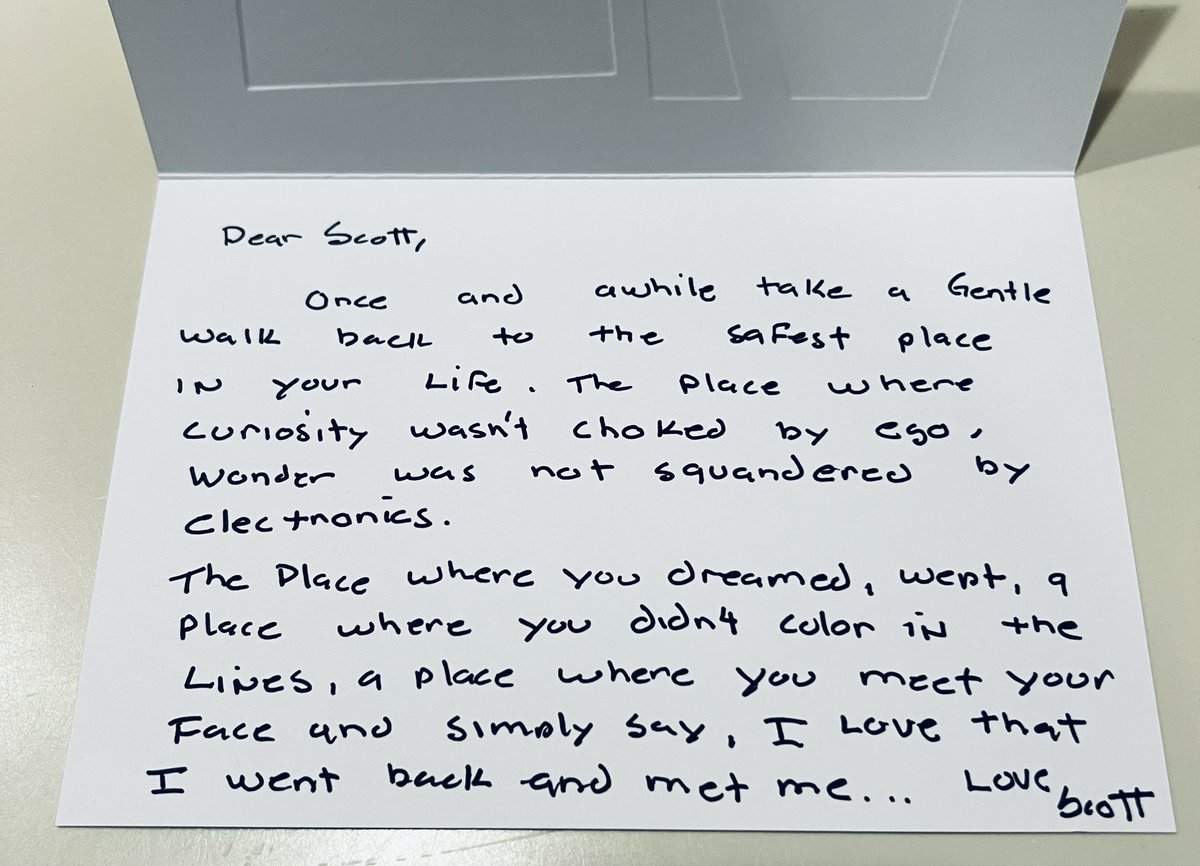 Dear Scott,
Once and awhile take a Gentle
walk back to the safest place
in your Life. The place where
curiosity wasn't choked by ego.
Wonder was not squandered by
electronics.
The Place where you dreamed, wept, a
place where you didn't color in the
Lines, a place where you meet your
Face and simply say, I Love that
I went back and met me... Love
Scott